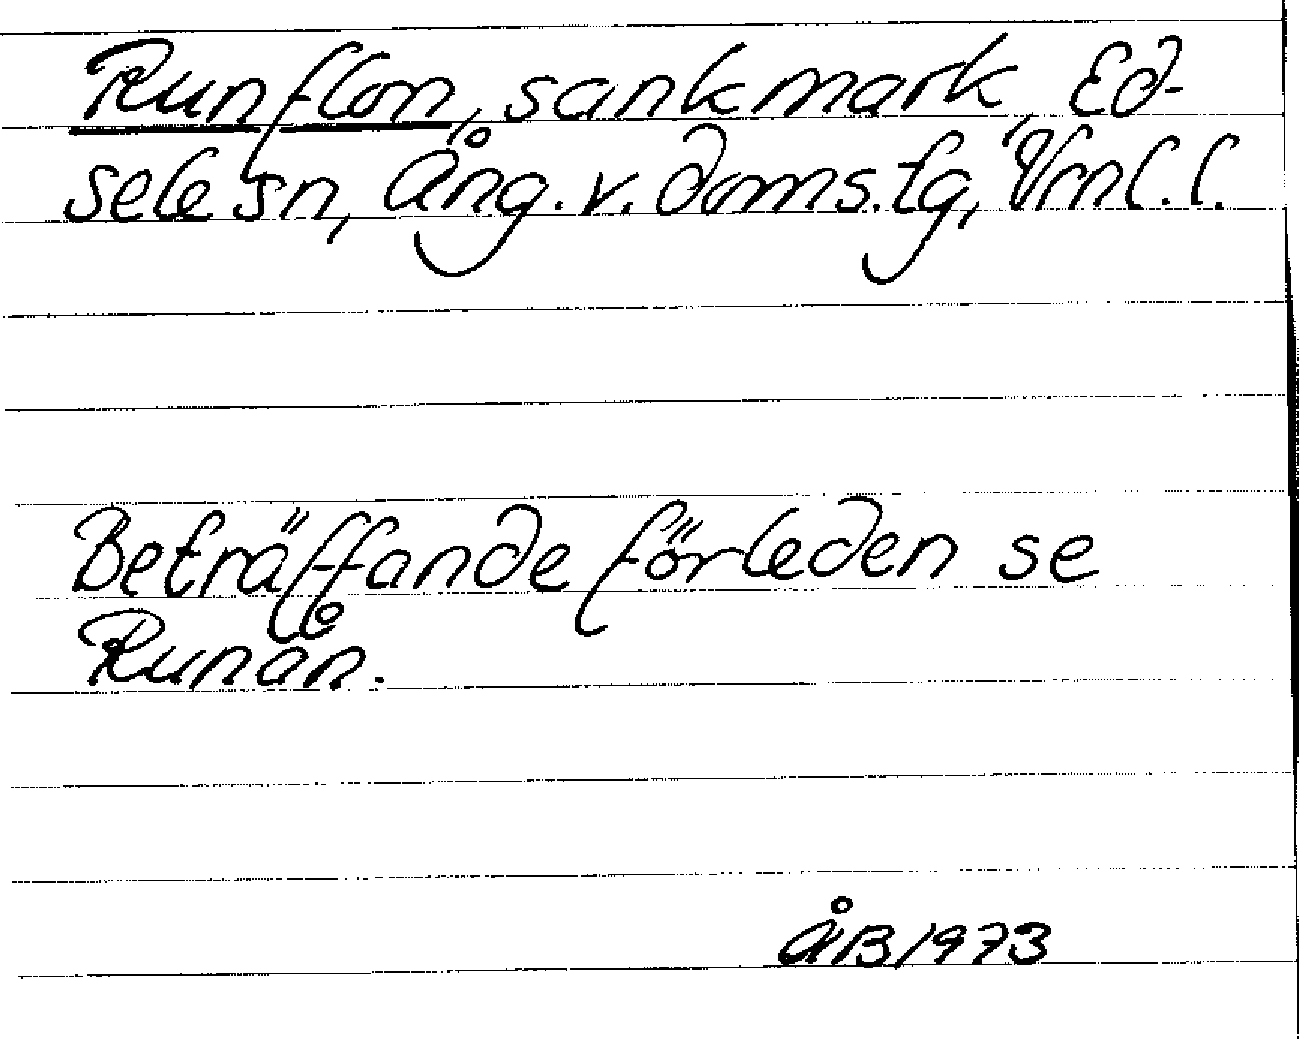 Runflon, sankmark, Ed-
sele sn, Ång. v. doms.tg, Vrnl. l.
Beträffande förleden se
Runån.
ÅB 1973